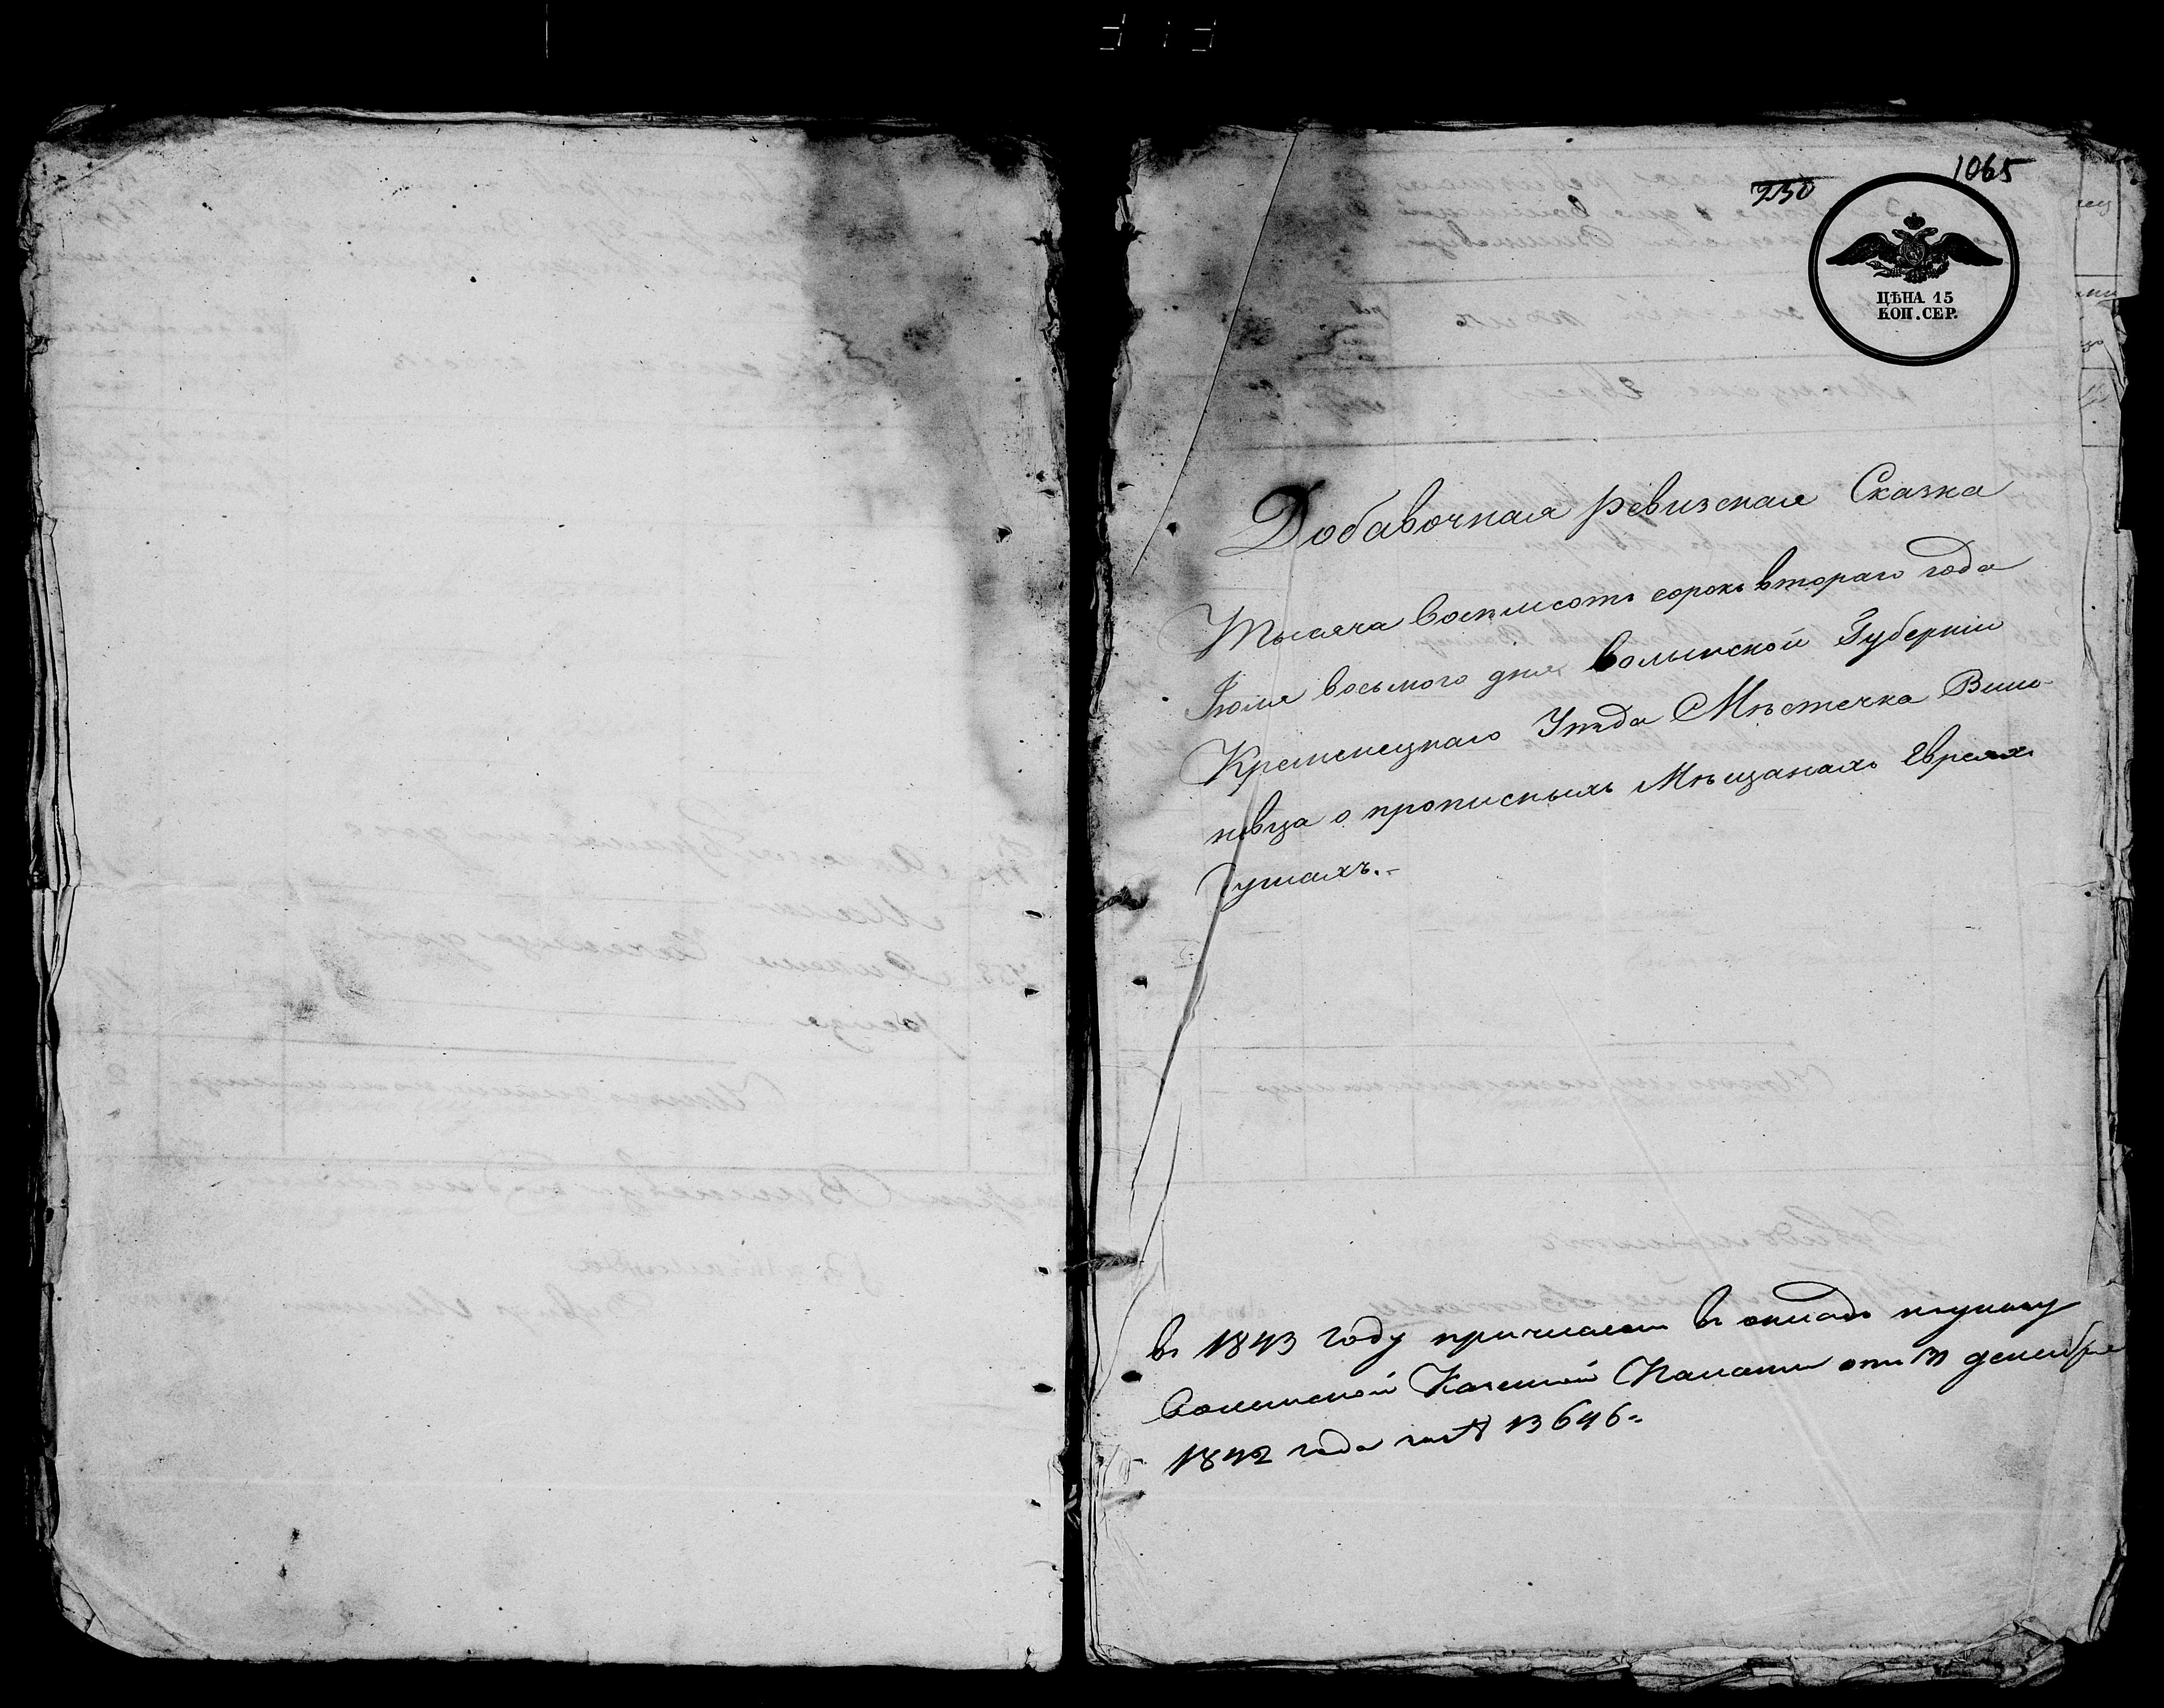 1065
750
ЦѢНА 15
КОП. СЕР.
Добавочная ревизская Сказка
Тысяча восемьсотъ сорокъ втораго года
Іюля восьмого дня, Волынской Губерніи
Кременецкаго Уѣзда Мѣстечка Виш-
невца о прописныхъ Мѣщанахъ Евреяхъ
Душахъ.-
въ 1843 году причислен въ окладъ по указу
Волынской Казенной Палаты отъ 31 декабря
1842 года за № 13646.